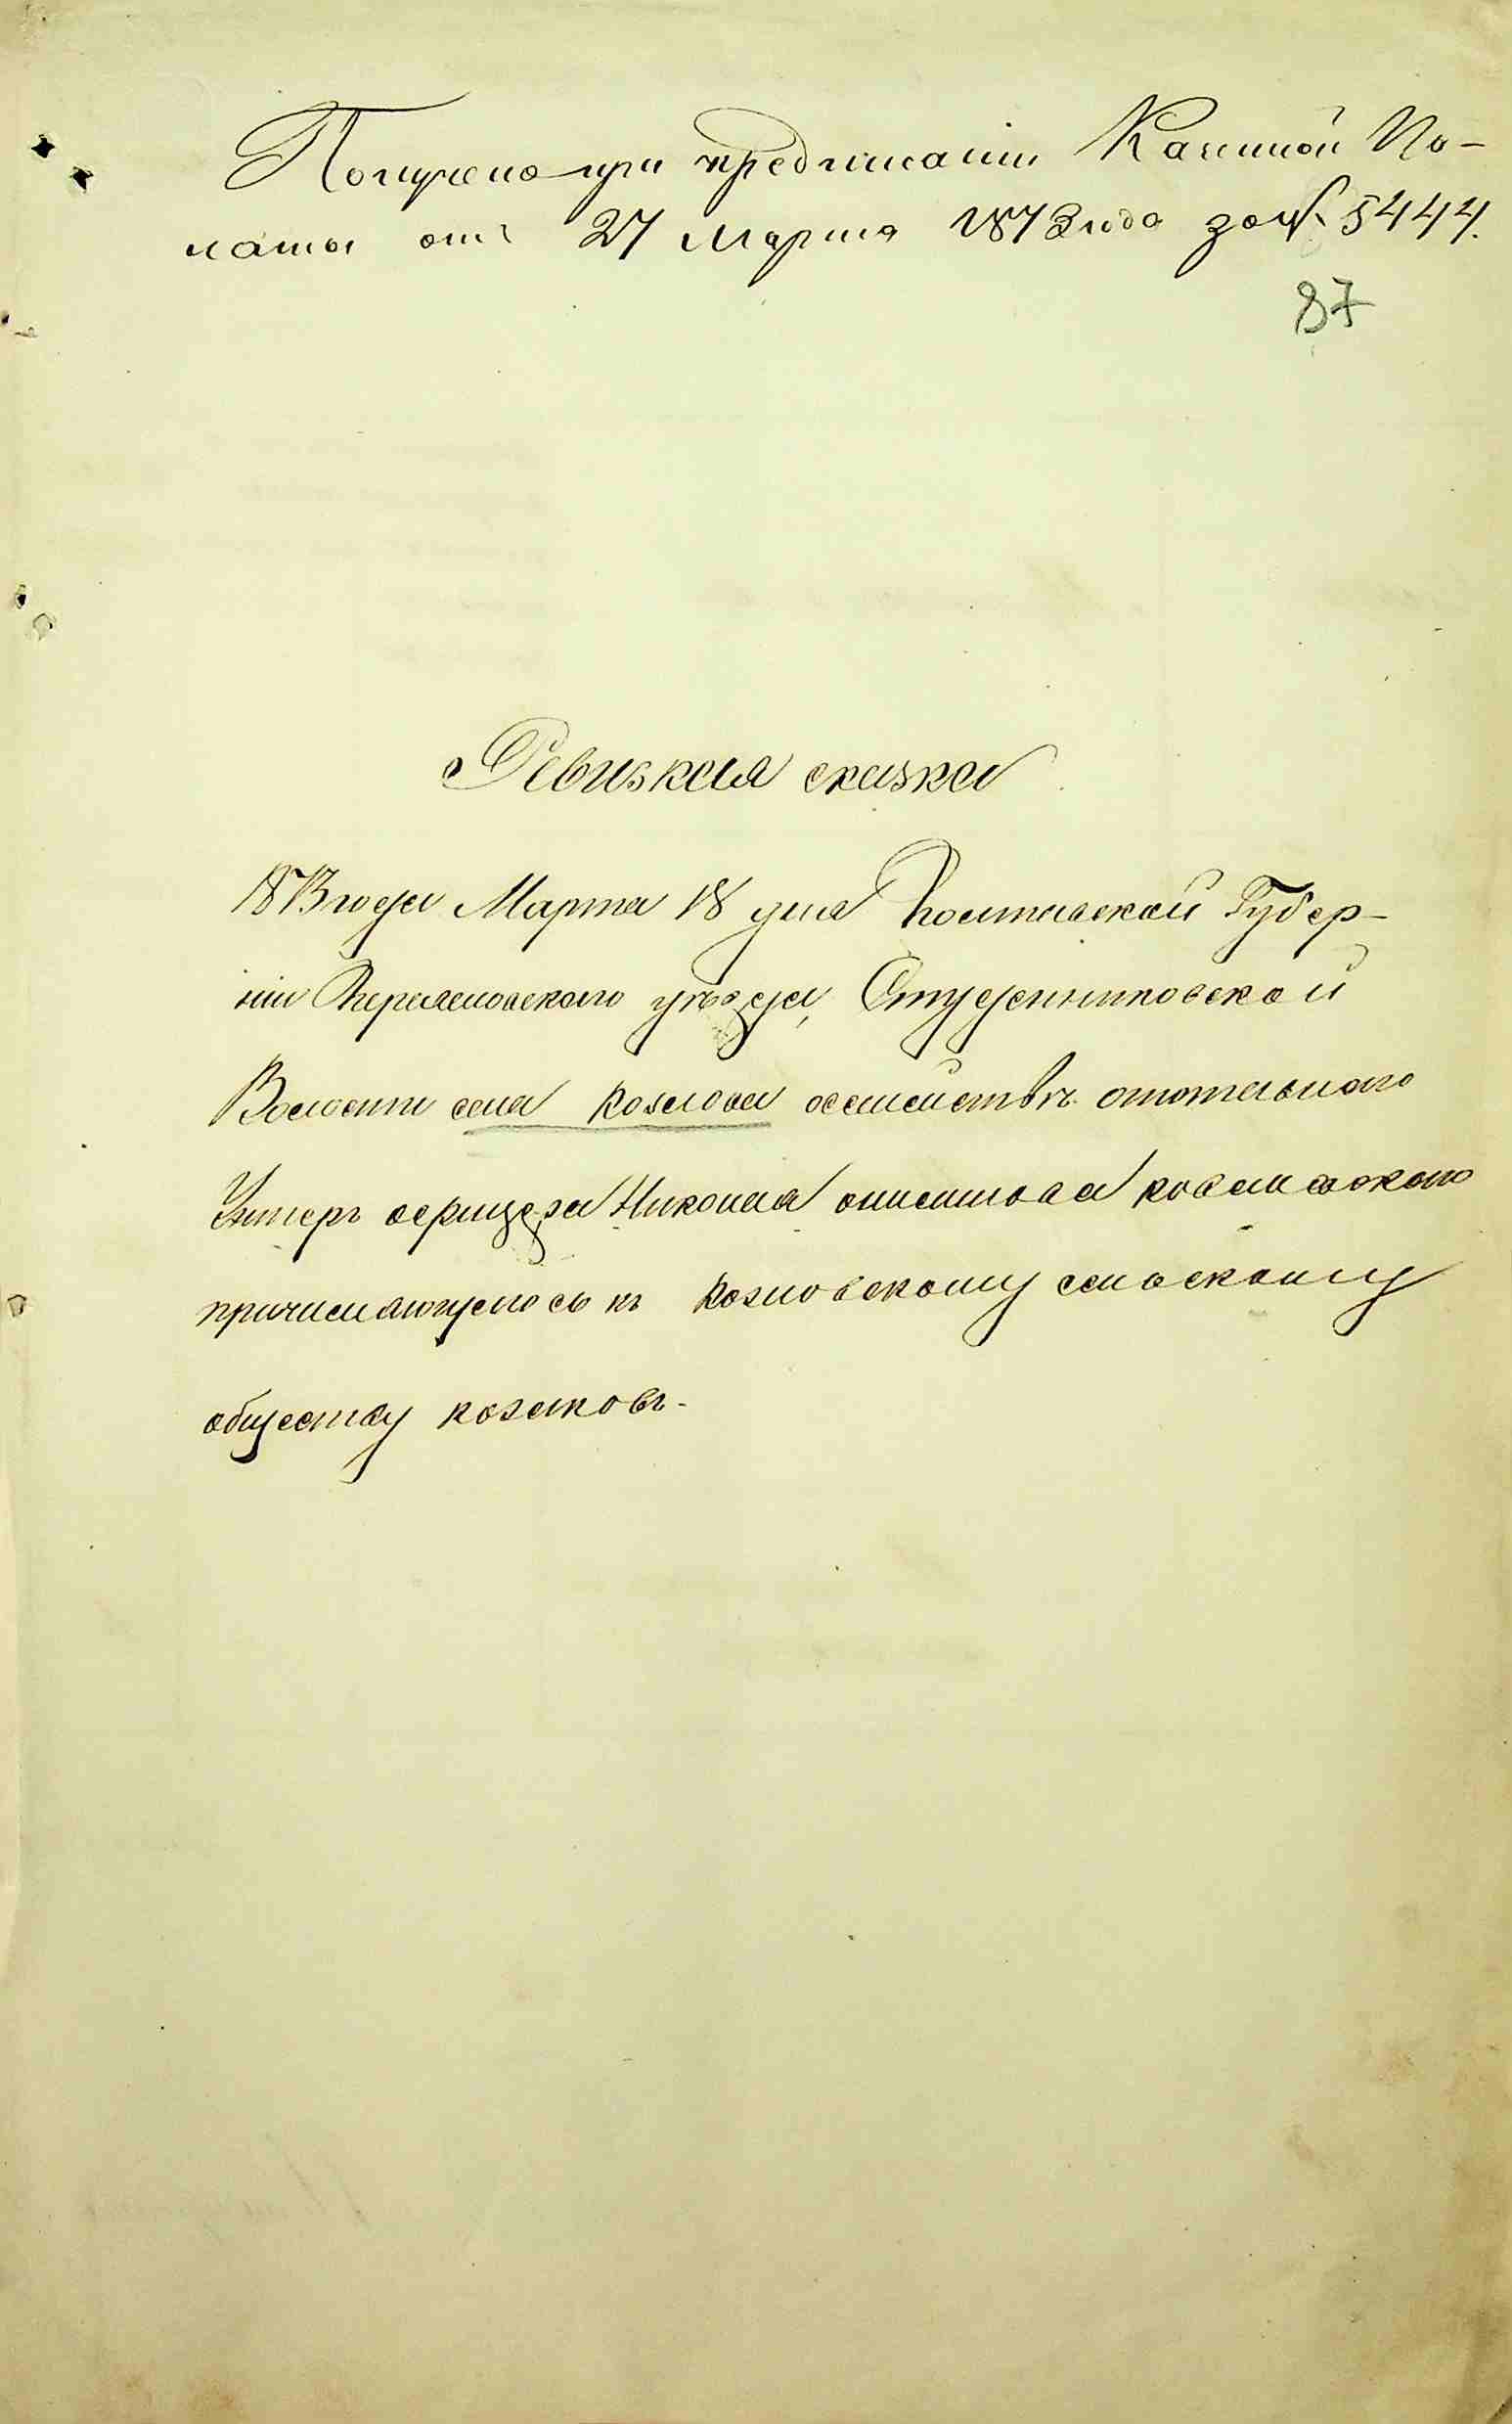 Получено при предписании Казенной Па-
латы отъ 27 Марта 1873 года за № 5444.
87
Ревизкая сказка
1873 года Марта 18 дня Полтавской Губер-
ніи Переяславского уѣзда, Студенниковской
Волости села Козлова осемействѣ отставнаго
Унтеръ офицера Николая
причисляющегося къ Козловскому сельскому
обществу козаковъ.